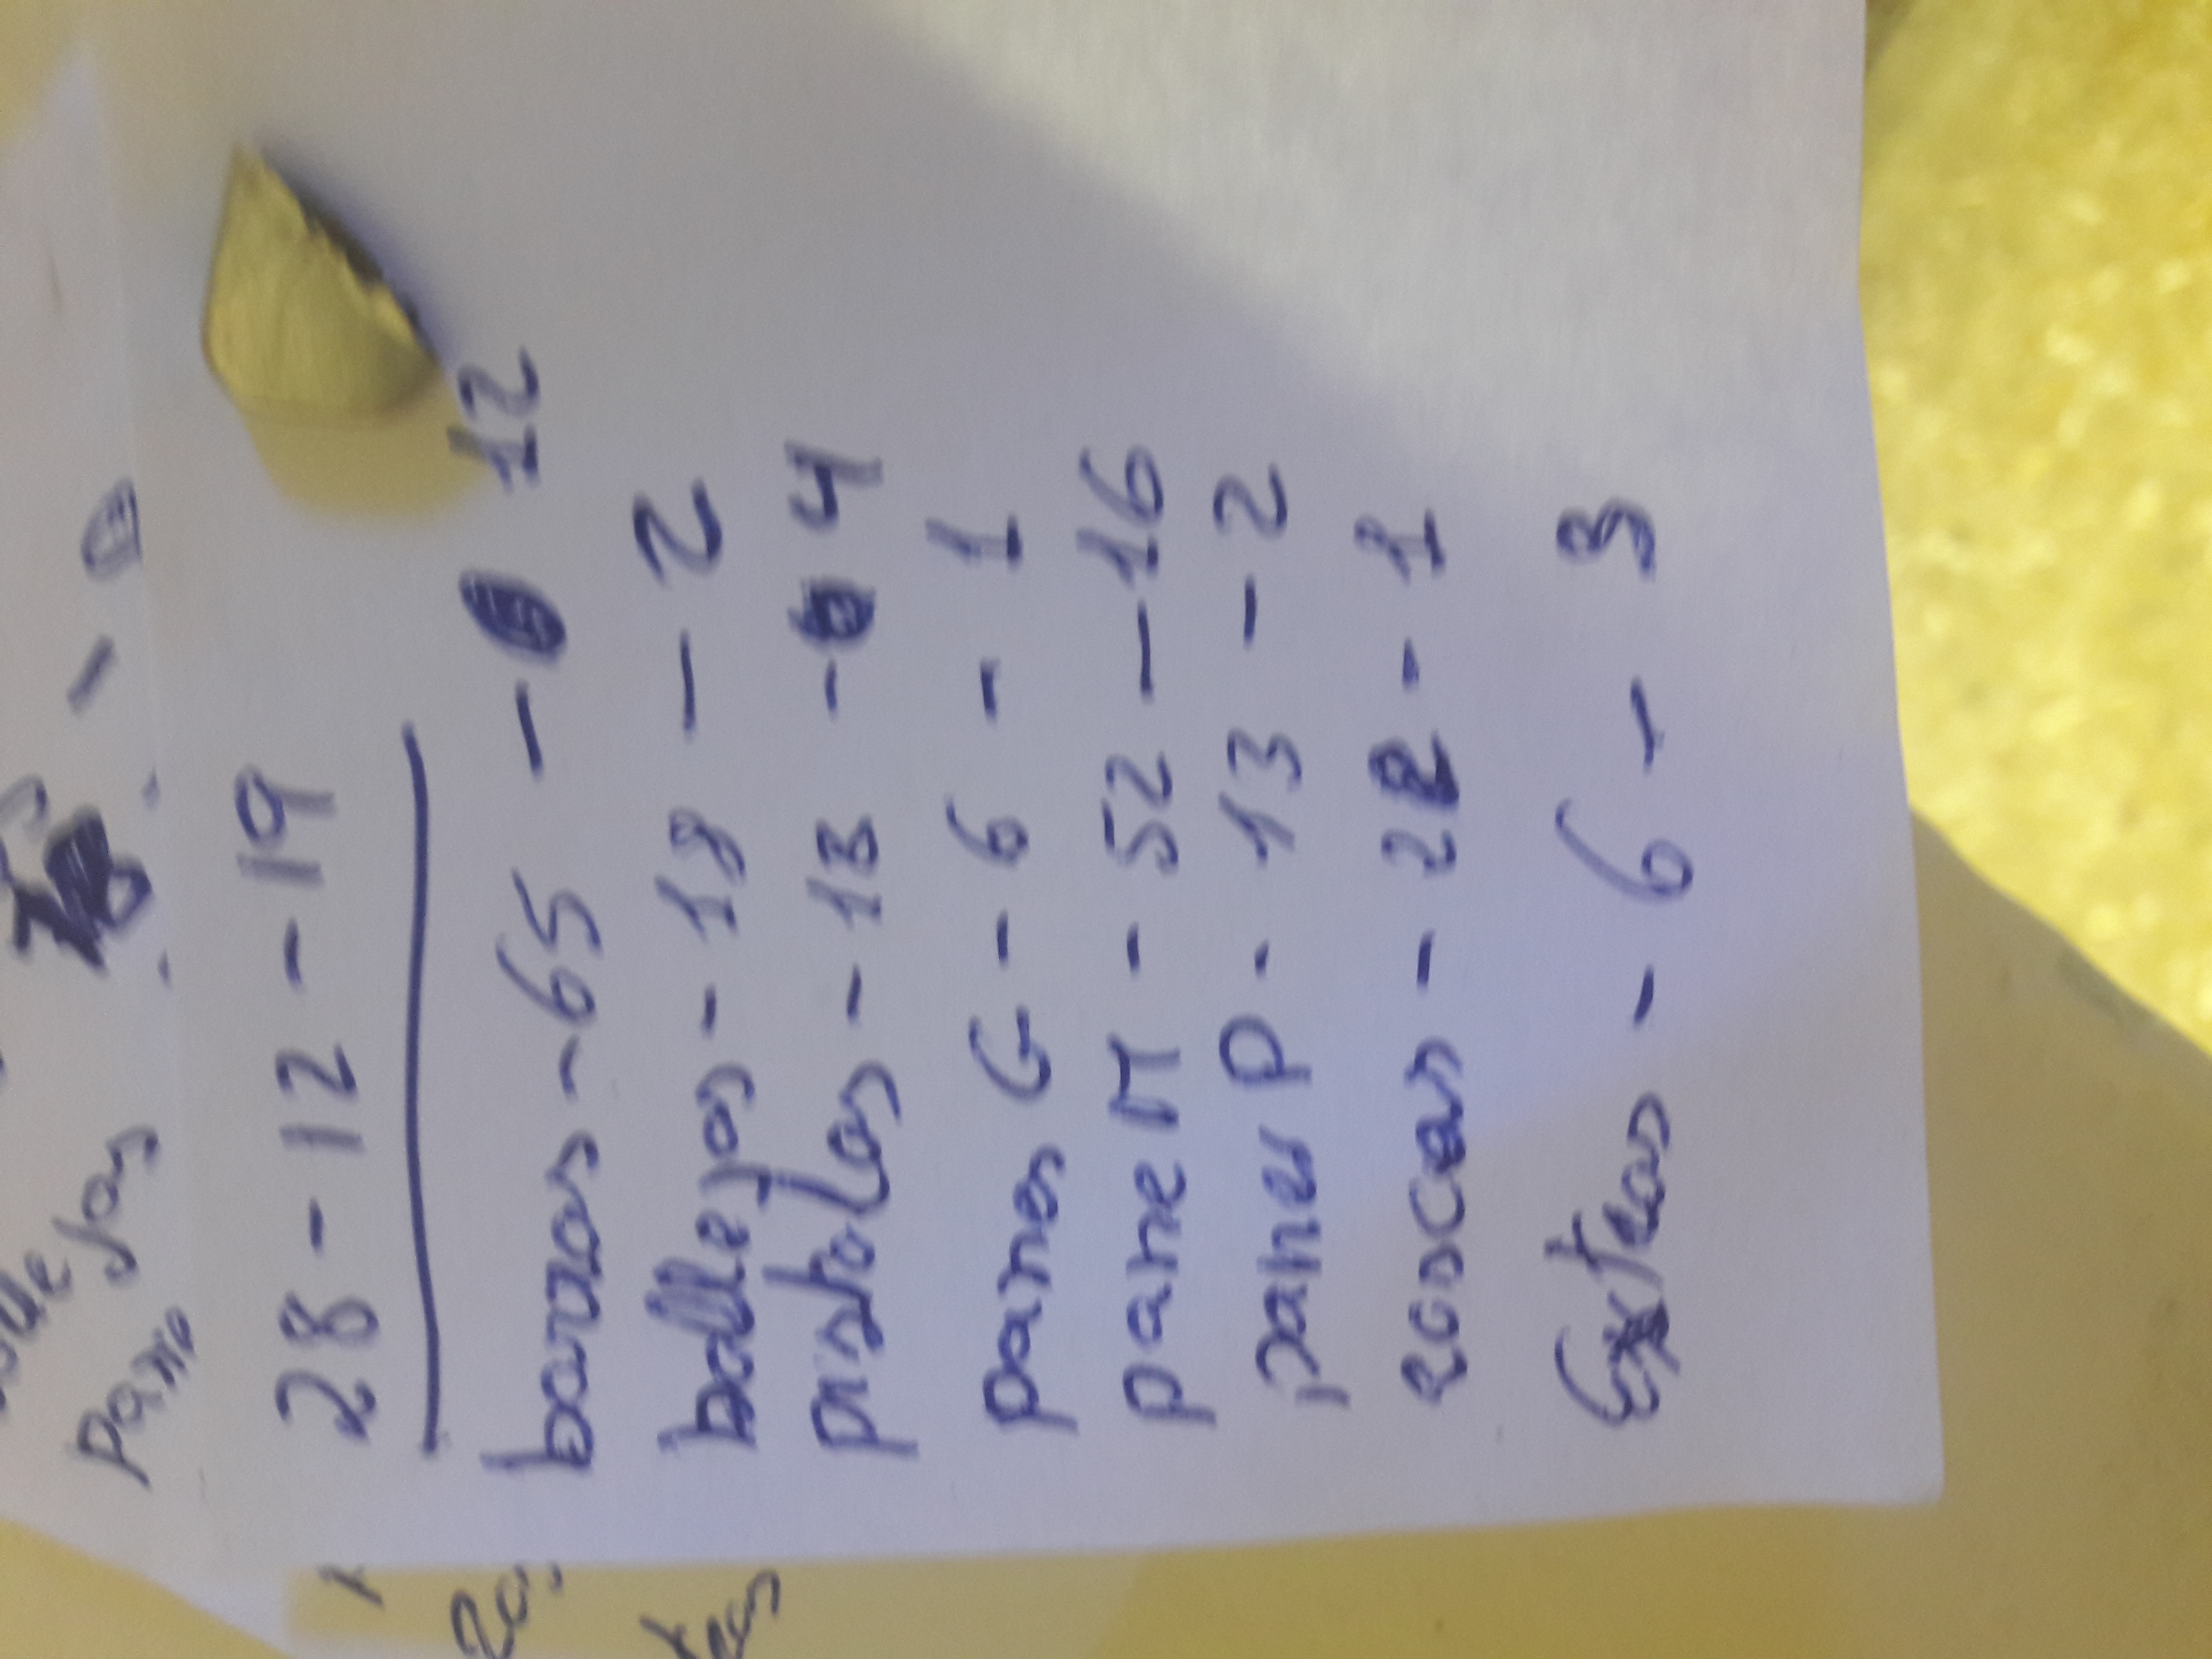 28 - 12 - 19
barras - 65 - 12
bollejos - 18 - 2
pistolas - 13 - 4
panes G - 6 - 1
panes M - 52 - 16
panes P - 13 - 2
roscas - 22 - 1
Extras - 6 - 3